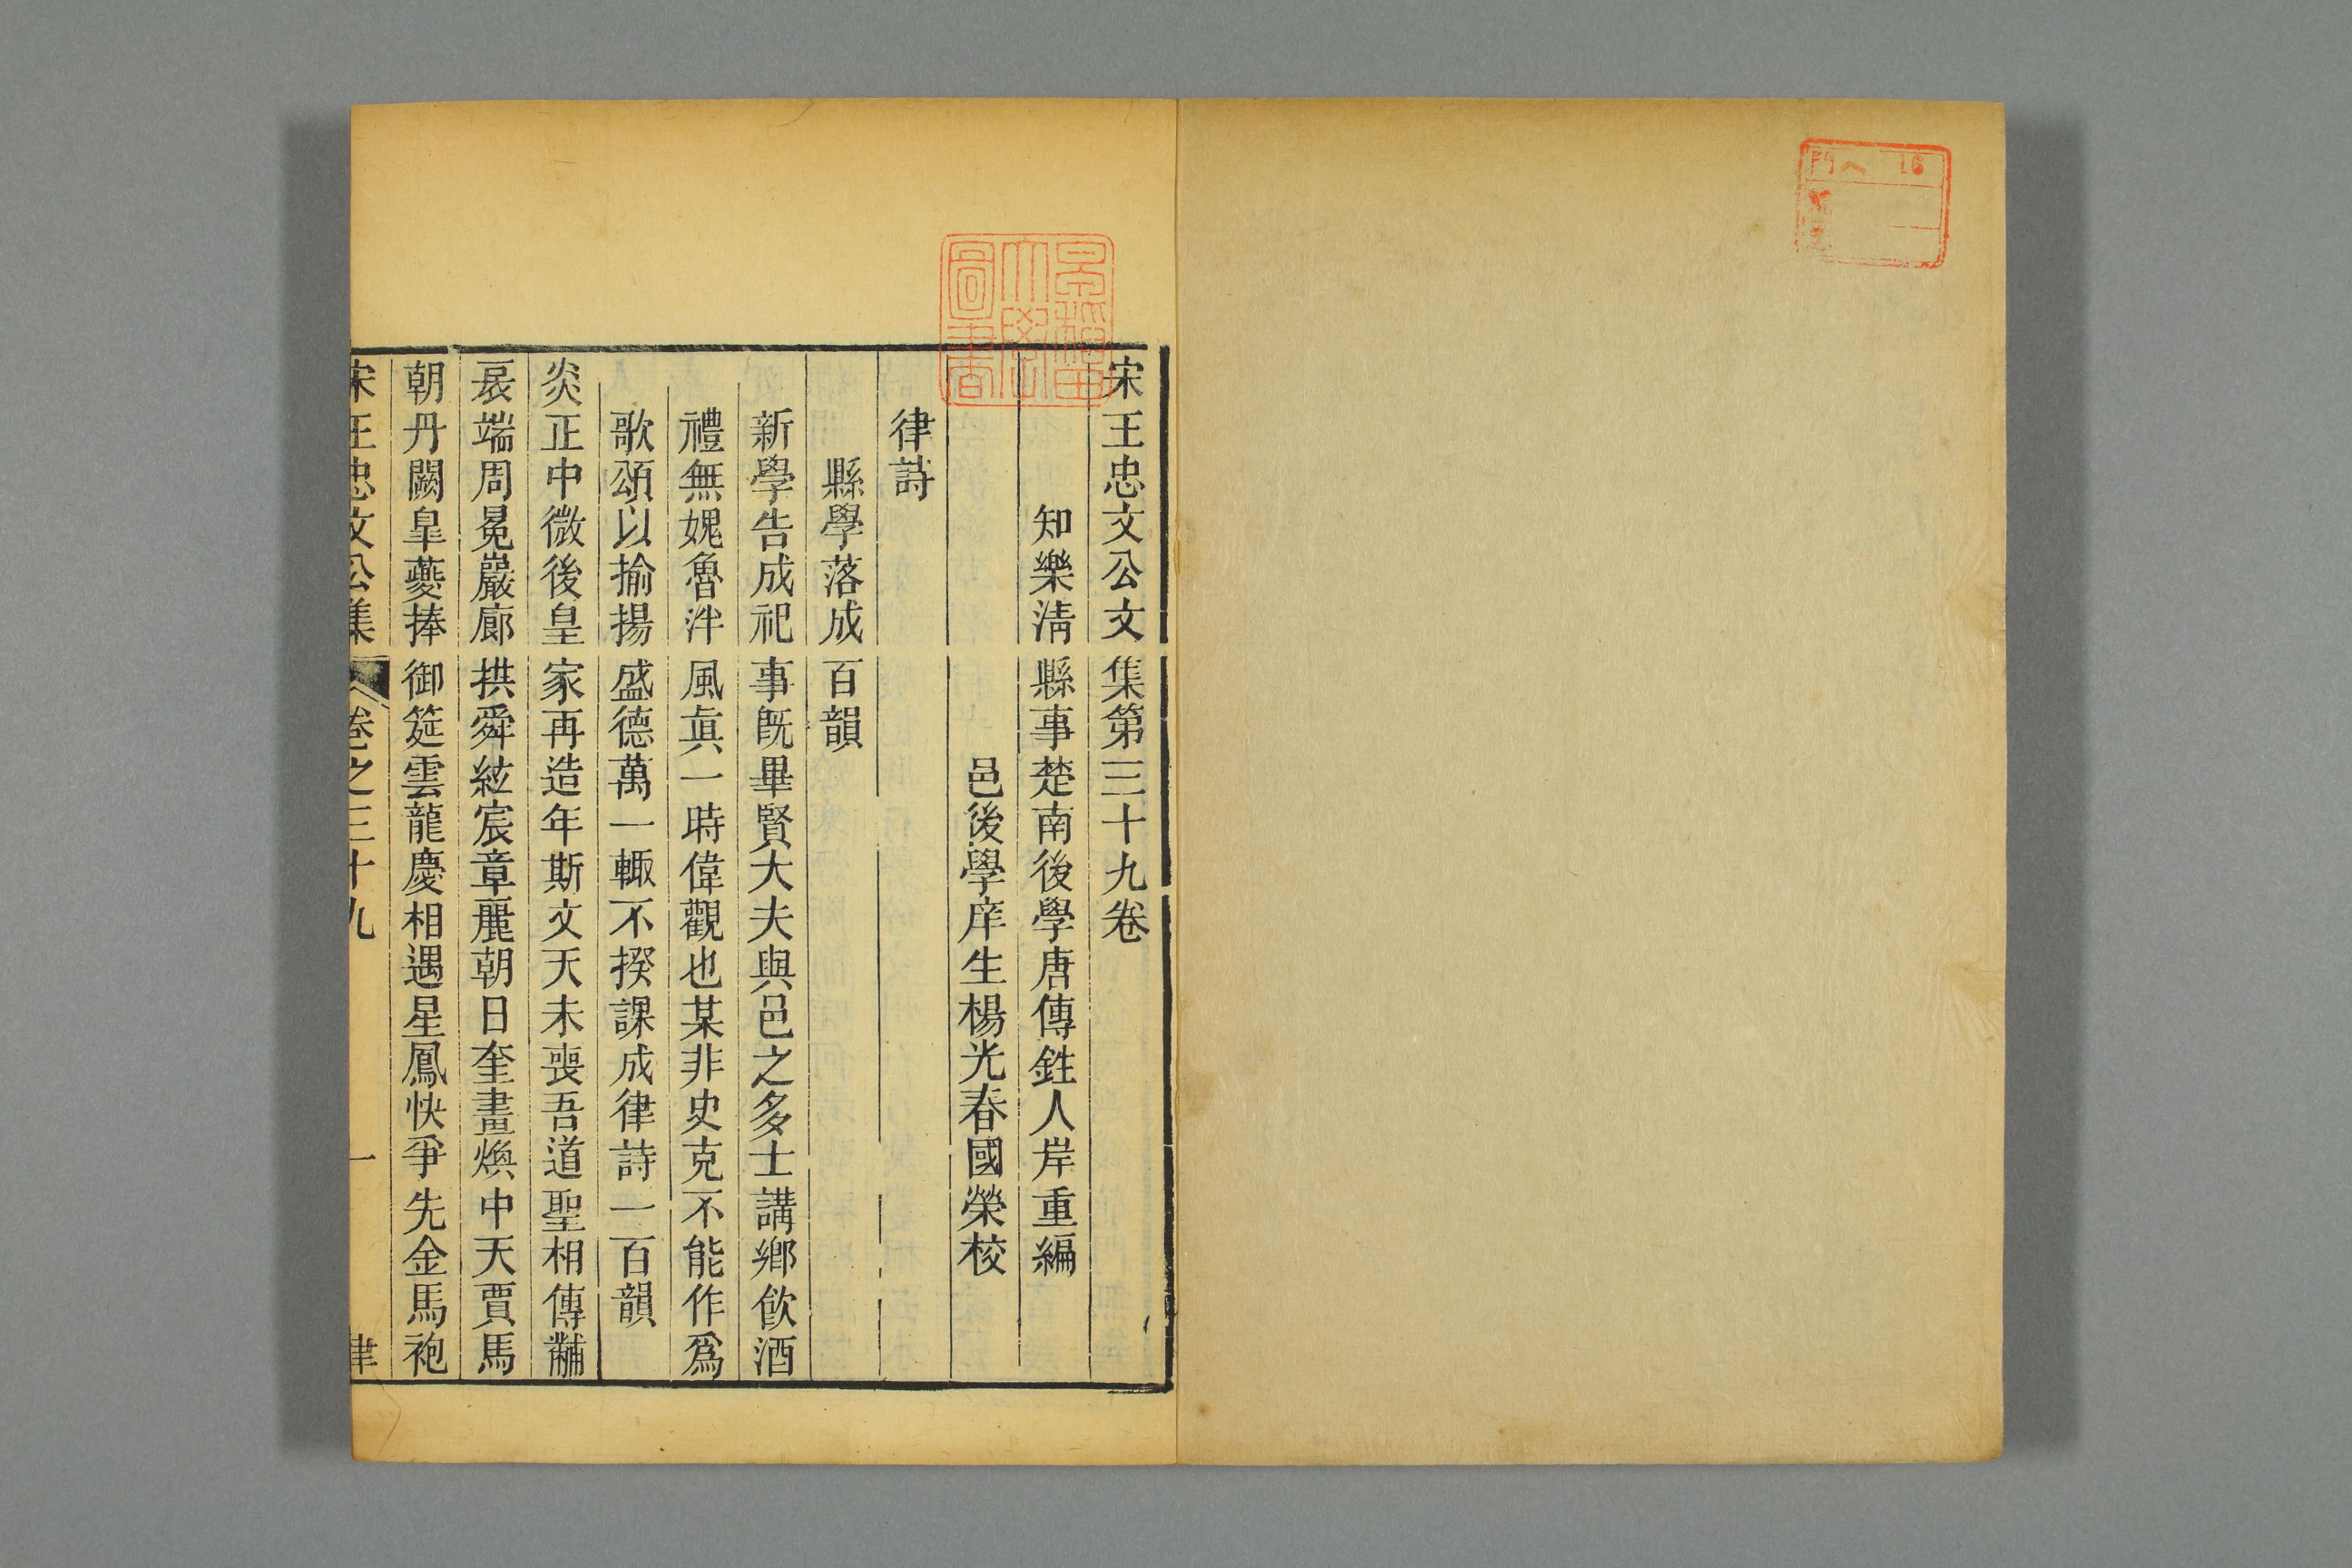 門 ヘ 16
早稲田
大學
圖書
宋王忠文公文集第三十九卷
知樂淸縣事楚南後學唐傳鉎人岸重編
邑後學庠生楊光春國榮校
律詩
縣學落成百韻
新學告成祀事旣畢賢大夫與邑之多士講鄉飮酒
禮無媿魯泮風眞一時偉觀也某非史克不能作爲
歌頌以揄揚盛德萬一輙不揆課成律詩一百韻
炎正中微後皇家再造年斯文天未喪吾道聖相傳黼
扆端周冕巖廊拱舜絃宸章麗朝日奎畫煥中天賈馬
朝丹闕臯夔捧御筵雲龍慶相遇星鳳快爭先金馬袍
宋王忠文公集 卷之三十九 一 律